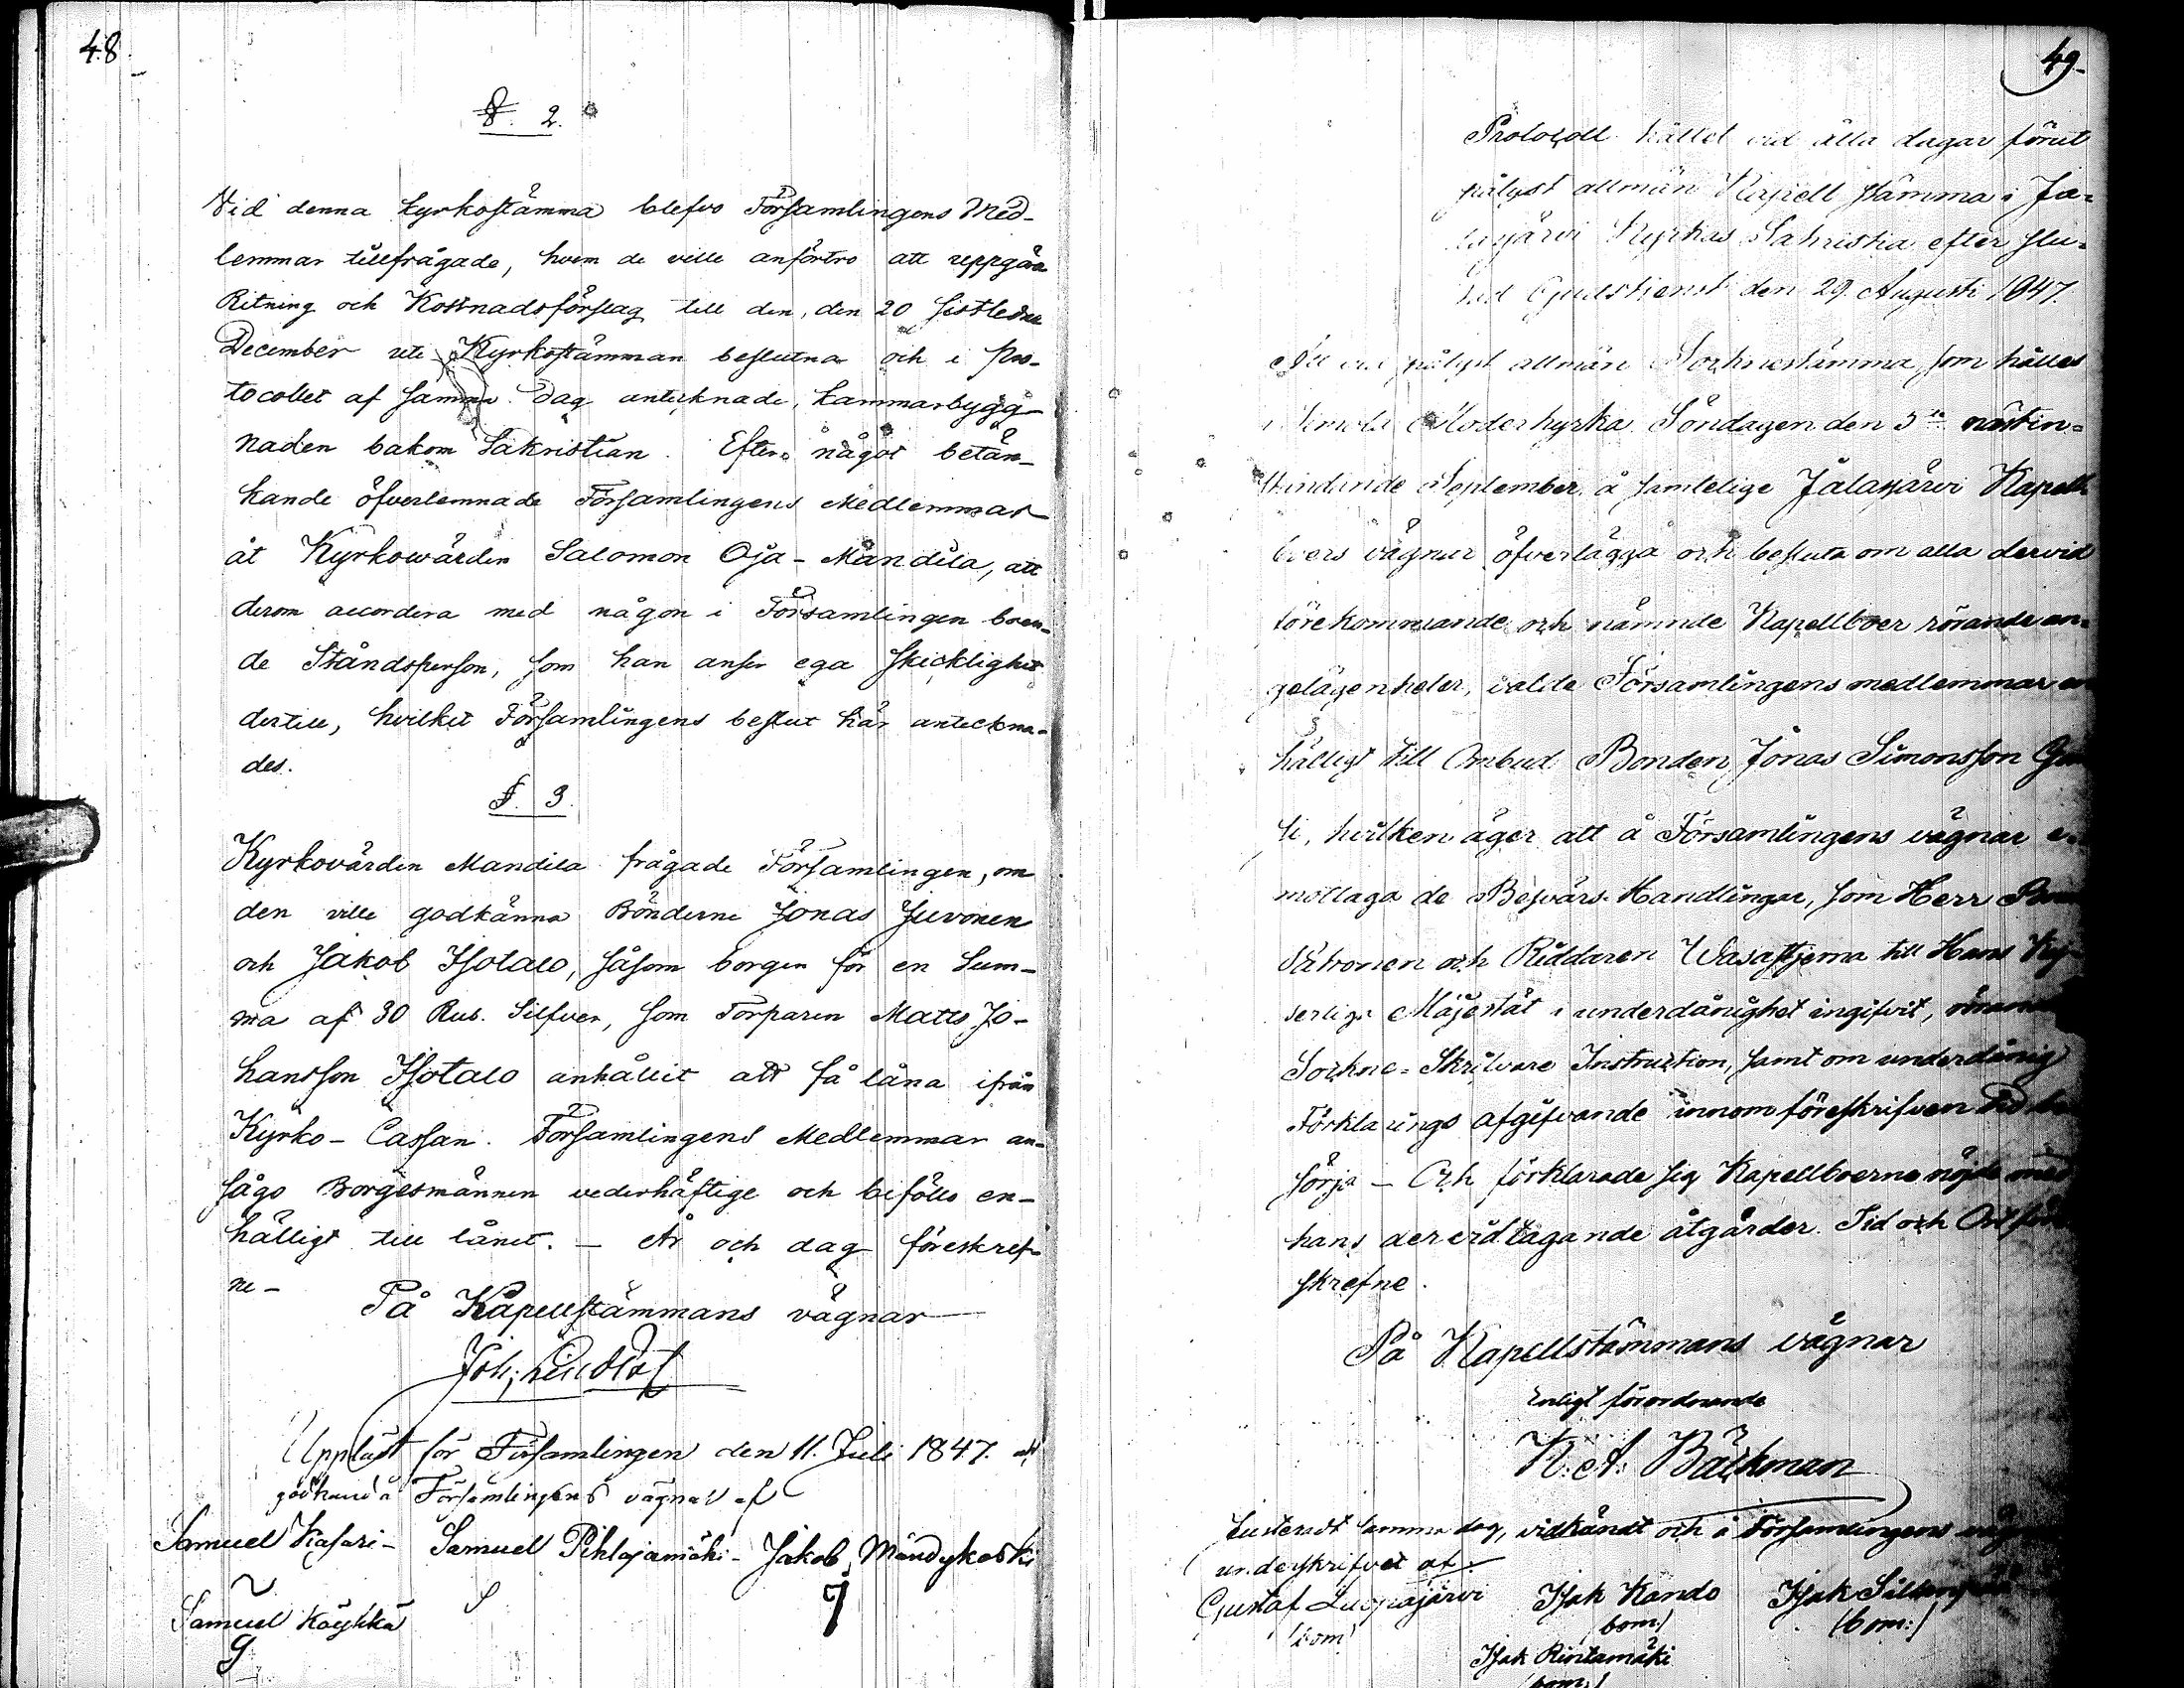 48.
§. 2.
Vid denna kyrkostämma blefvo Församlingens Med-
lemmar tillfrågade, hvem de ville anförtro att uppgöra
Ritning och Kostnadsförslag till den, den 20 sistledne
December uti Kyrkostämman beslutna och i Pro-
tocollet af samma dag antecknade, kammarbygg-
naden bakom Sakristian. Efter något betän-
kande öfverlemnade Församlingens Medlemmar
åt Kyrkowärden Salomon Oja-Mandila, att
derom accordera med någon i Församlingen boen-
de Ståndsperson, som han anser ega skicklighet
dertill, hvilket Församlingens beslut här anteckna-
des.
§. 3.
Kyrkovärden Mandila frågade Församlingen, om
den ville godkänna Bönderne Jonas Juvonen
och Jakob Isotalo, såsom borgen för en Sum-
ma af 30 Rub. Silfver, som Torparen Matts Jo-
hansson Isotalo anhållit att få låna ifrån
Kyrko-Cassan. Församlingens Medlemmar an-
sågo Borgesmännen vederhäftige och biföllo en-
hälligt till lånet. – År och dag föreskref-
ne –
På Kapellstämmans vägnar
Joh. Lindlöf
Uppläst för Församlingen den 11. Juli 1847. och
godkänd å Församlingens vägnar af
Samuel Kasari - Samuel Pihlajamäki - Jakob Mändykoski
Samuel Köykkä
49.
Protocoll hållet vid åtta dagar förut
pålyst allmän Kapell stämma i Ja-
lasjärvi Kyrkas Sakristia efter slu-
tad Gudstjenst den 29. Augusti 1847.
Att vid pålyst allmän Socknestämma, som hålles
i Ilmola Moderkyrka Söndagen den 5te nästin-
stundande September, å samtelige Jalasjärvi Kapell-
boers vägnar öfverlägga och besluta om alla dervid
förekommande och nämnde Kapellboer rörande an-
gelägenheter, valde Församlingens medlemmar en-
hälligt till Ombud Bonden Jonas Simonsson
ti, hvilken äger att å Församlingens vägnar e-
mottaga de Besvärs-Handlingar, som Herr
Patronen och Riddaren Wasastjerna till Hans Kej-
serliga Majestät i underdånighet ingifvit,
Sockne-Skrifvare Instruction, samt om underdånig
Förklarings afgifvande innom föreskrifven Tid
sörja – Och förklarade sig Kapellboerne nöjde med
hans dervid tagande åtgärder. Tid och Ort före-
skrefne.
På Kapellstämmans vägnar
Enligt förordnande
K. A. Bäckman
Justeradt samma dag, vidkändt och å Församlingens vägnar
underskrifvet af
Gustaf Luopajärvi Isak Kando Isak
(bom) (bom) (bom:)
Isak Rintamäki
(bom)